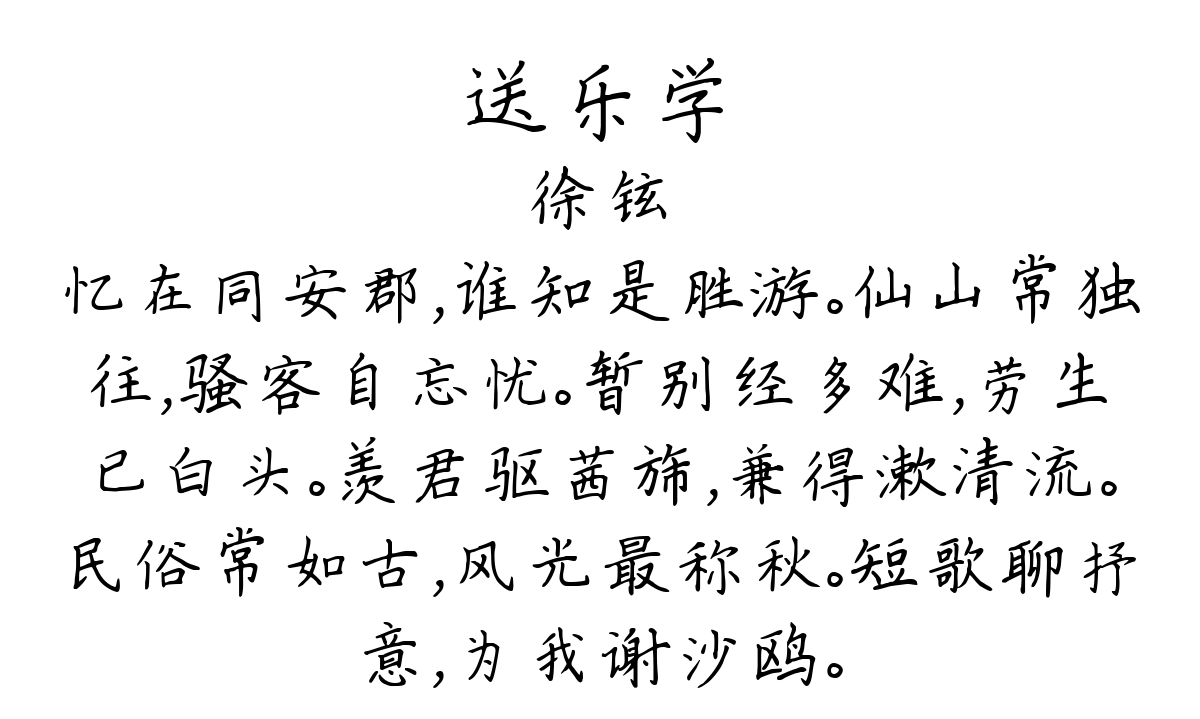 送乐学
徐铉
忆在同安郡,谁知是胜游。仙山常独
往,骚客自忘忧。暂别经多难,劳生
已白头。羡君驱茜旆,兼得漱清流。
民俗常如古,风光最称秋。短歌聊抒
意,为我谢沙鸥。